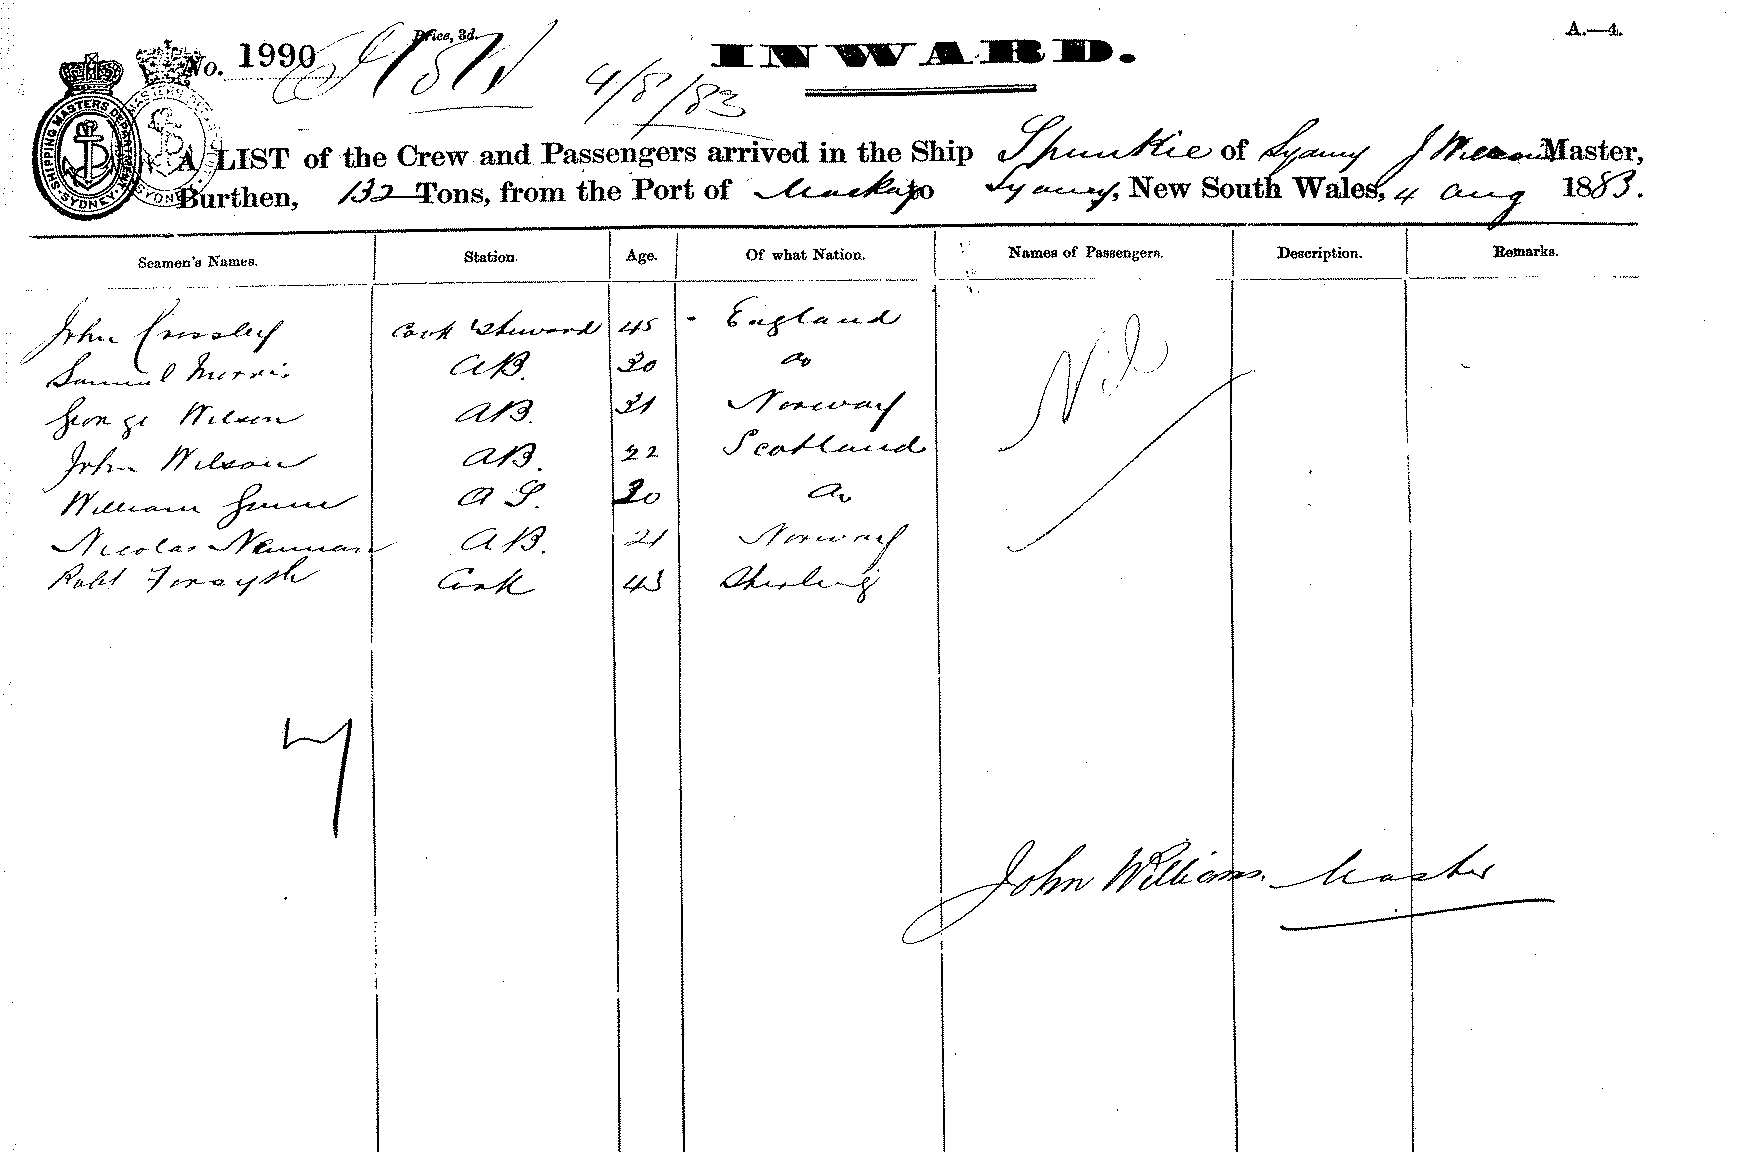 A.—4.
Price, 3d.
No. 1990
INWARD.
4/8/83
SHIPPING MASTERS DEPARTMENT SYDNEY
A LIST of the Crew and Passengers arrived in the Ship Spunkie of Sydney J Master,
Burthen, 132 Tons, from the Port of Mackay to Sydney, New South Wales, 4 Aug 1883.
Seamen's Names. Station. Age. Of what Nation. Names of Passengers. Description. Remarks.
John Crossley Cook Steward 45 England Nil
Samuel Morris AB. 30 Do
George Wilson AB. 31 Norway
John Wilson AB. 22 Scotland
William AS. 20 Do
Nicolas Neuman AB. 21 Norway
Robt Forsyth Cook 43
7
John Williams. Master